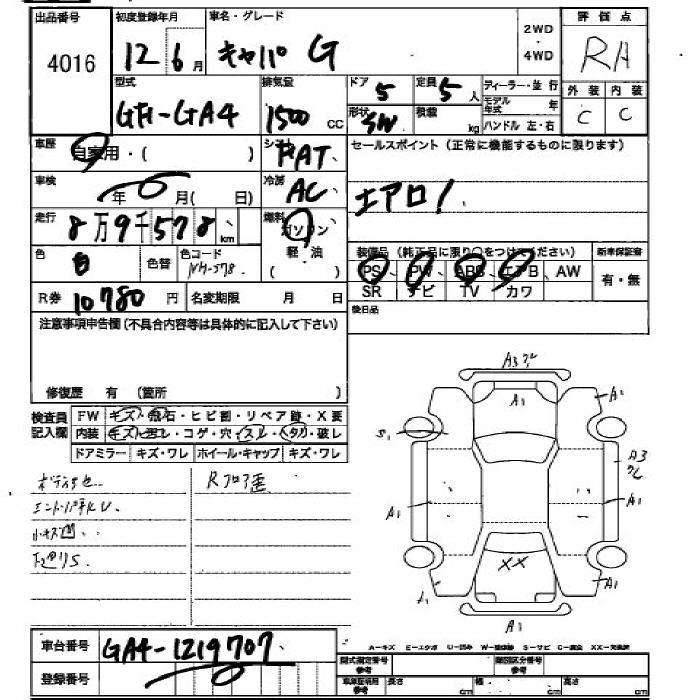 出品番号 初度登録年月 車名・グレード 2WD・4WD 評価点
4016 12 6月 キャパ G RA
型式 排気量 ドア 5 定員 5人 ディーラー・並行 外装 内装
GF-GA4 1500 CC 形状 SW 積載 kg モデル年式 年 C C
ハンドル 左・右
車歴 自家用・( ) シフト FAT セールスポイント(正常に機能するものに限ります)
車検 年 月( 日) 冷房 AC エアロ!
走行 8万9千578 km 燃料 ガソリン
色 白 色替 色コード NH-578 軽・油 ( ) 装備品(純正品に限り○をつけてください) 新車保証書
PS、PW、ABS、エアB、AW 有・無
R券 10780円 名変期限 月 日 SR ナビ TV カワ
注意事項申告欄(不具合内容等は具体的に記入して下さい) 後日品
修復歴 有 (箇所 )
検査員記入欄 FW キズ・飛石・ヒビ割・リペア跡・X要
内装 キズ・コゲ・穴・スレ・破レ
ドアミラー キズ・ワレ ホイール・キャップ キズ・ワレ
A3 A1 A2
S1 A3
A1 A1
XX
A1 A1
A1
小キズ凹、
Rフロア歪
車台番号 GA4-1219707
登録番号
A－キズ E－エクボ U－凹み W－補修跡 S－サビ C－腐食 XX－交換済
型式指定番号 参考 類別区分番号 参考
車庫証明用 参考 長さ cm 幅 cm 高さ cm